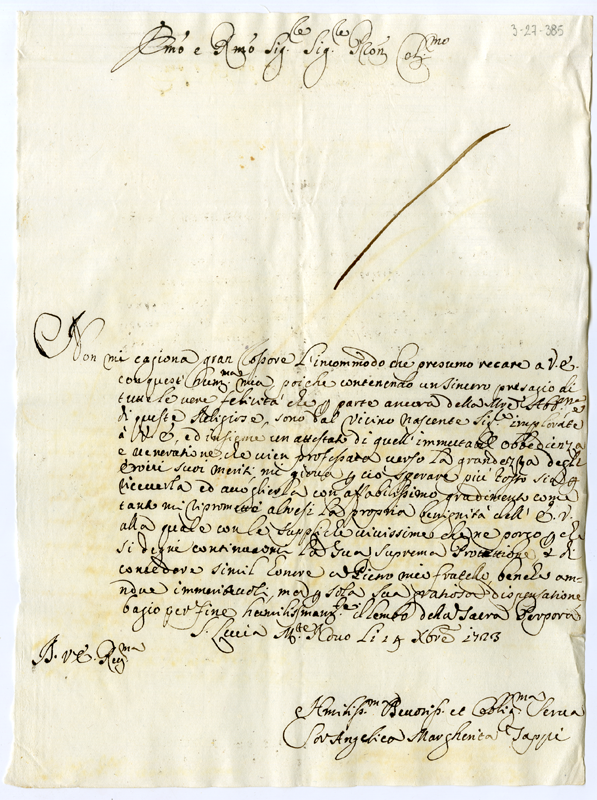 3-27-385
Emo e Rmo Sig.le Sig.le Pron Col.mo
Non mi cagiona gran rossore l'incommodo che presumo recare a V.E.
con quest'hum.ma mia, poiche contenendo un sincero presagio di
tutte le vere felicità che p parte ancora della Mre Abb.
di queste Religiose, sono dal Vicino Nascente Sig.re implorate
à V.E., ed insieme un attestato di quell'immutabile obbedienza
e veneratione che vien professata verso la grandezza degli
suoi meriti mi giova p ciò sperare più tosto sia p
riceverla ed accoglierla con affabilissimo gradimento come
tanto mi riprometto altresi la propria benignità dell'E.V.
alla quale con le suppliche vivissime che ne porgo p che
si degni continuarmi la Sua Suprema Protettione e di
concedere simil honore a Pietro mio fratello benche am-
ndue immeritevoli, ma p sola sua pietosa dispensatione
bagio per fine humilissimam.te il lembo della Sacra Porpora
S. Lucia Li 14 Xbre 1723
D. V.E. Rev.ma
Humiliss.ma Devotiss. et Obblig.ma Serva
Sor Angelica Margherita Tappi